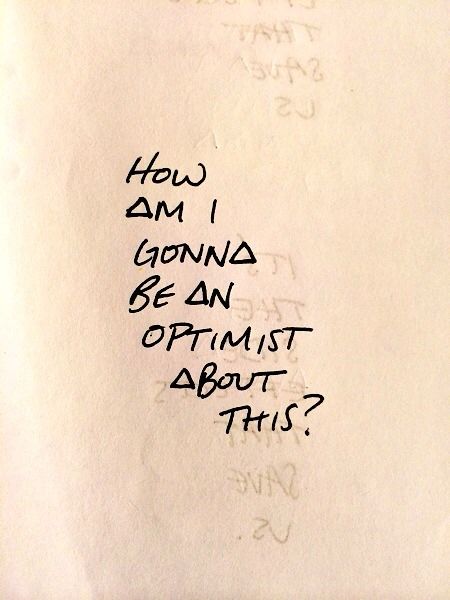 HOW
AM I
GONNA
BE AN
OPTIMIST
ABOUT
THIS?